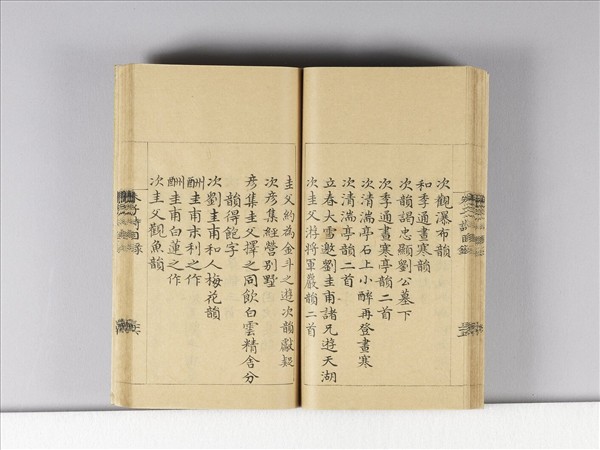 次觀瀑布韻
和季通畫寒韻
次韻謁忠顯劉公墓下
次季通畫寒亭韻二首
次清湍亭石上小醉再登畫寒
次清湍亭韻二首
立春大雪邀劉圭甫諸兄遊天湖
次圭父游將軍巖韻二首
圭父約為金斗之遊次韻獻疑
次彥集經營別墅
彥集圭父擇之同飲白雲精舍分
韻得飽字
次劉圭甫和人梅花韻
酬圭甫末利之作
酬圭甫白蓮之作
次圭父觀魚韻